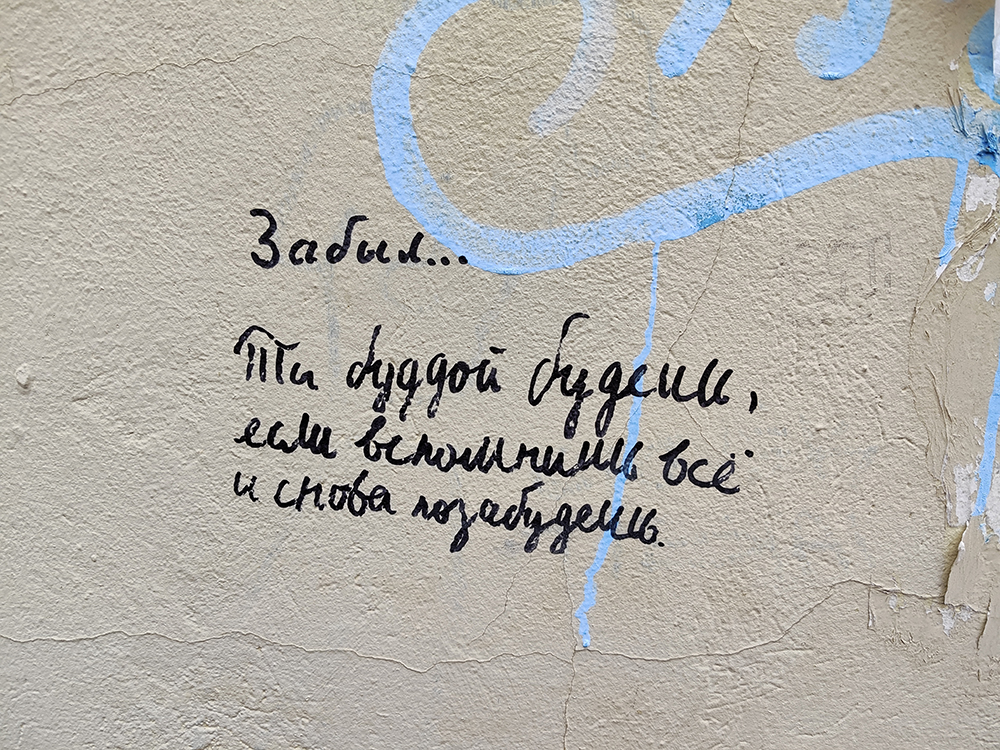 Забыл...
Ты буддой будешь,
если вспомнишь всё
и снова позабудешь.